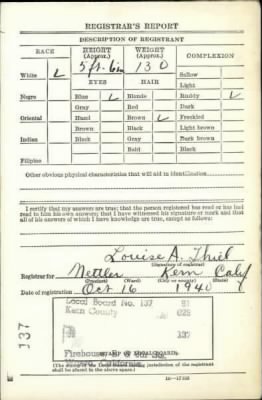 REGISTRAR'S REPORT
DESCRIPTION OF REGISTRANT
RACE HEIGHT (Approx.) WEIGHT (Approx.) COMPLEXION
5 ft. 6 in 130
White ✓ EYES HAIR Sallow
Light
Negro Blue ✓ Blonde Ruddy ✓
Gray Red Dark
Oriental Hazel Brown ✓ Freckled
Brown Black Light brown
Indian Black Gray Dark brown
Bald Black
Filipino
Other obvious physical characteristics that will aid in identification
I certify that my answers are true; that the person registered has read or has had
read to him his own answers; that I have witnessed his signature or mark and that
all of his answers of which I have knowledge are true, except as follows:
Louise A. Thiel
(Signature of registrar)
Registrar for Mettler Kern Calif
(Precinct) (Ward) (City or county) (State)
Date of registration Oct 16 1940
Local Board No. 137
Kern County 029
137
137
Firehouse
(STAMP OF LOCAL BOARD)
(The stamp of the Local Board having jurisdiction of the registrant
shall be placed in the above space.)